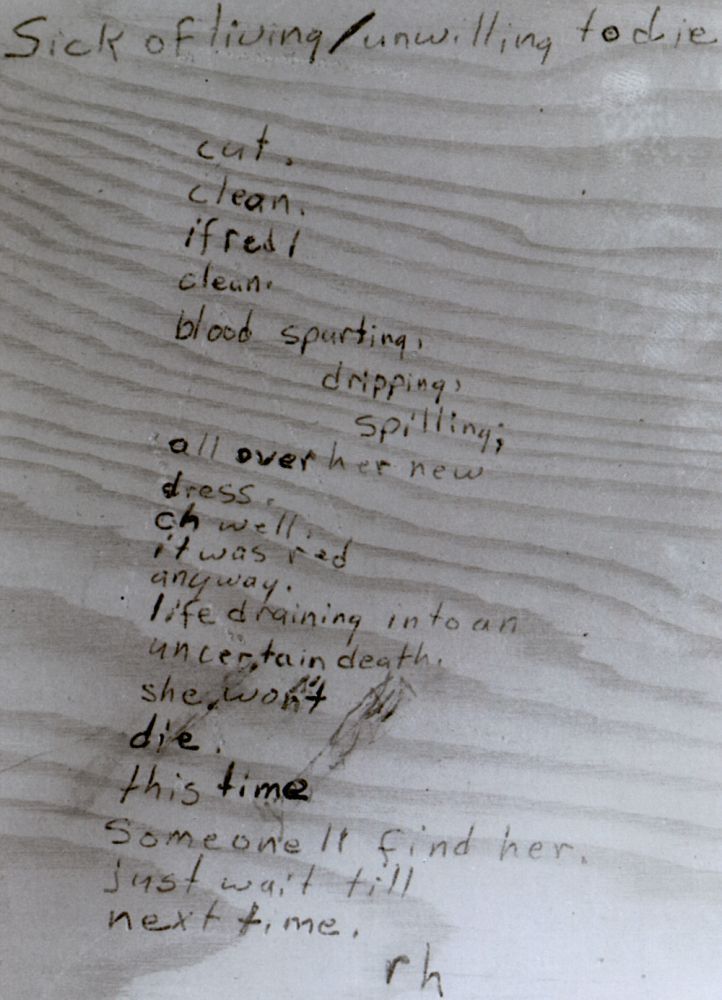 Sick of living/unwilling to die
cut.
clean.
if red /
clean.
blood spurting,
dripping,
spilling;
all over her new
dress.
oh well.
it was red
anyway.
life draining into an
uncertain death.
she won't
die.
this time
Someone ll find her.
just wait till
next time.
rh